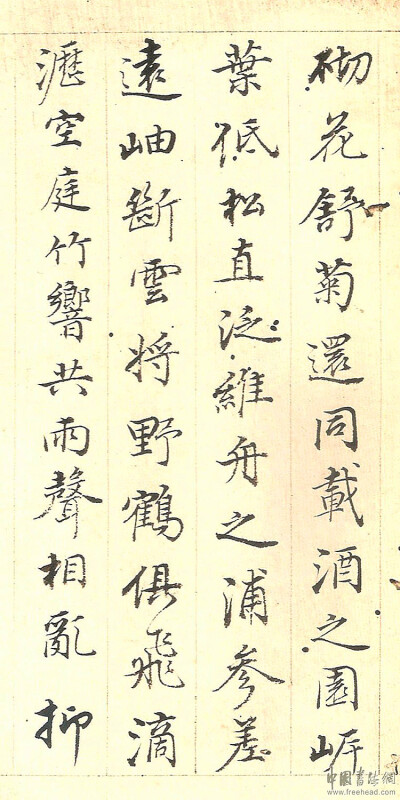 砌花舒菊還同載酒之園岍
葉低松直泛維舟之浦參差
遠岫斷雲將野鶴俱飛滴
瀝空庭竹響共雨聲相亂抑
中國書法網
www.freehead.com